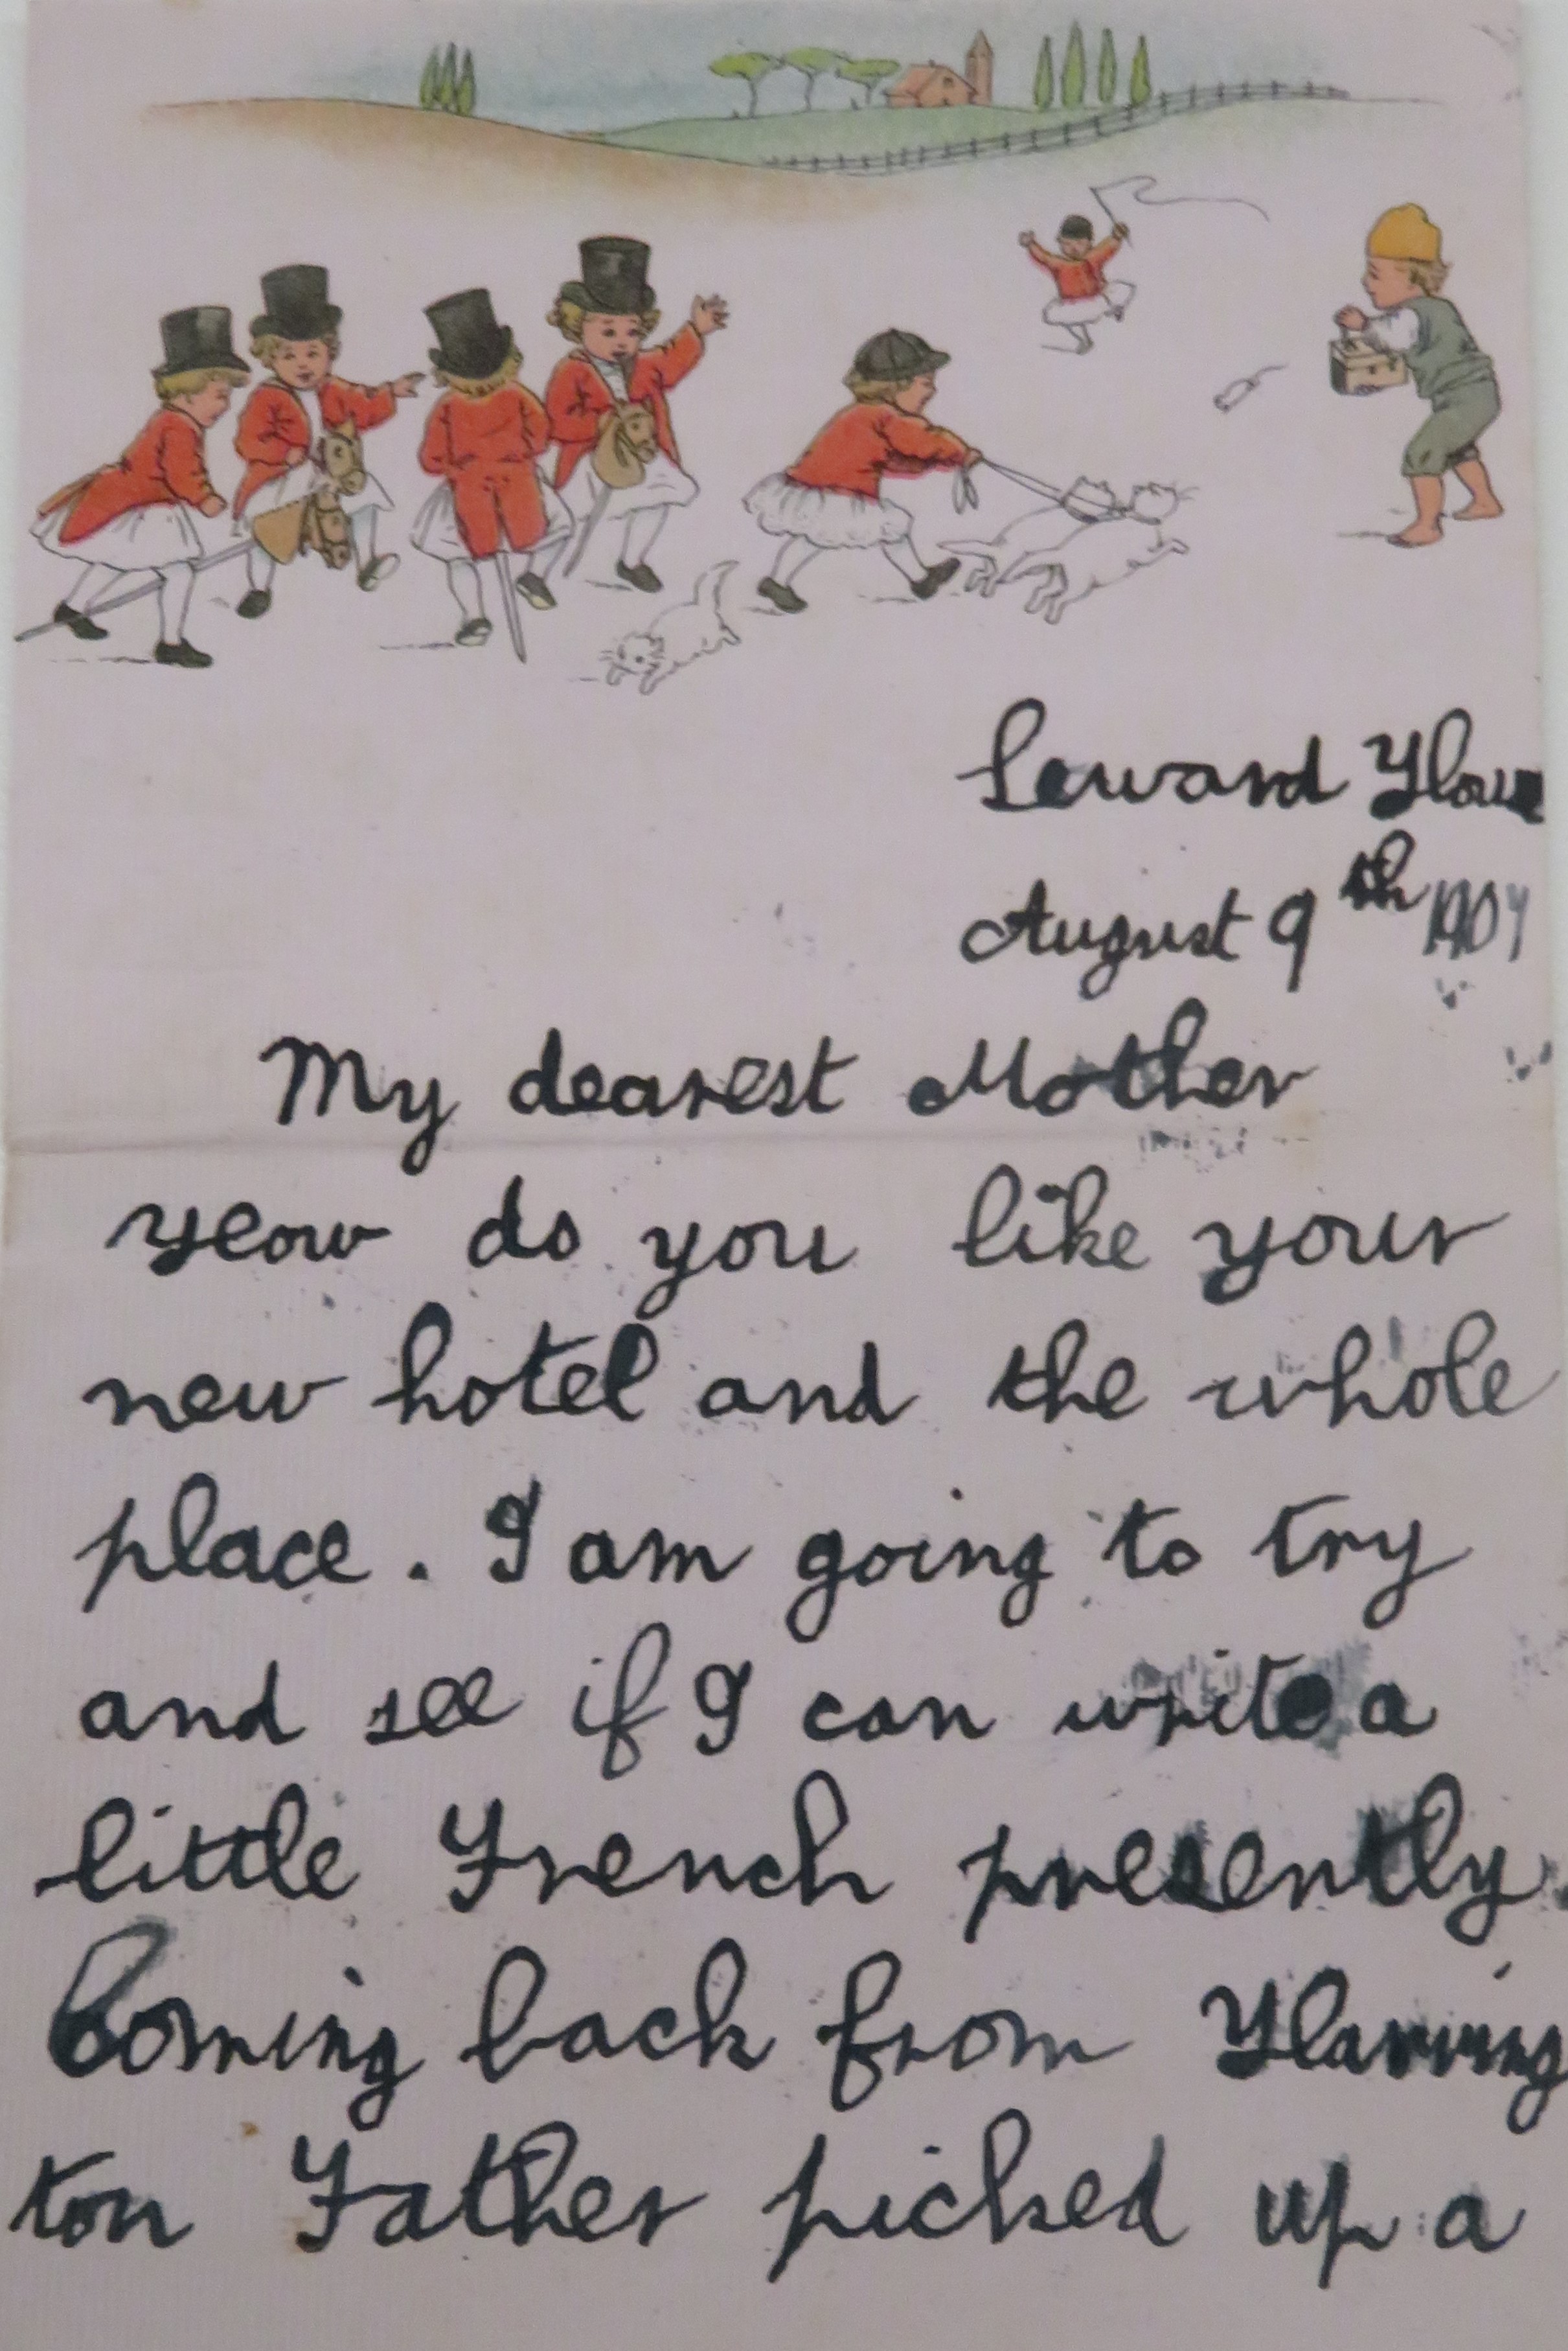 Seward House
August 9th 1904
My dearest Mother
How do you like your
new hotel and the whole
place. I am going to try
and see if I can write a
little French presently.
Coming back from Harring
ton Father picked up a